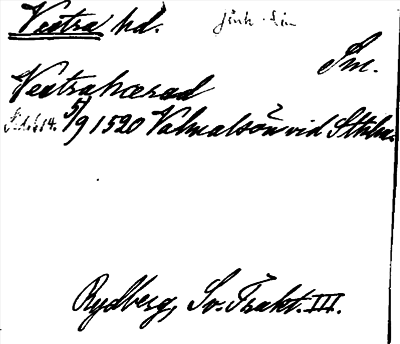 Vestra hd. Jönk. Län
Sm.
Vestrahærad
5/9 1520 Valmalsön vid Sthlm.
Rydberg, Sv. Trakt. III.